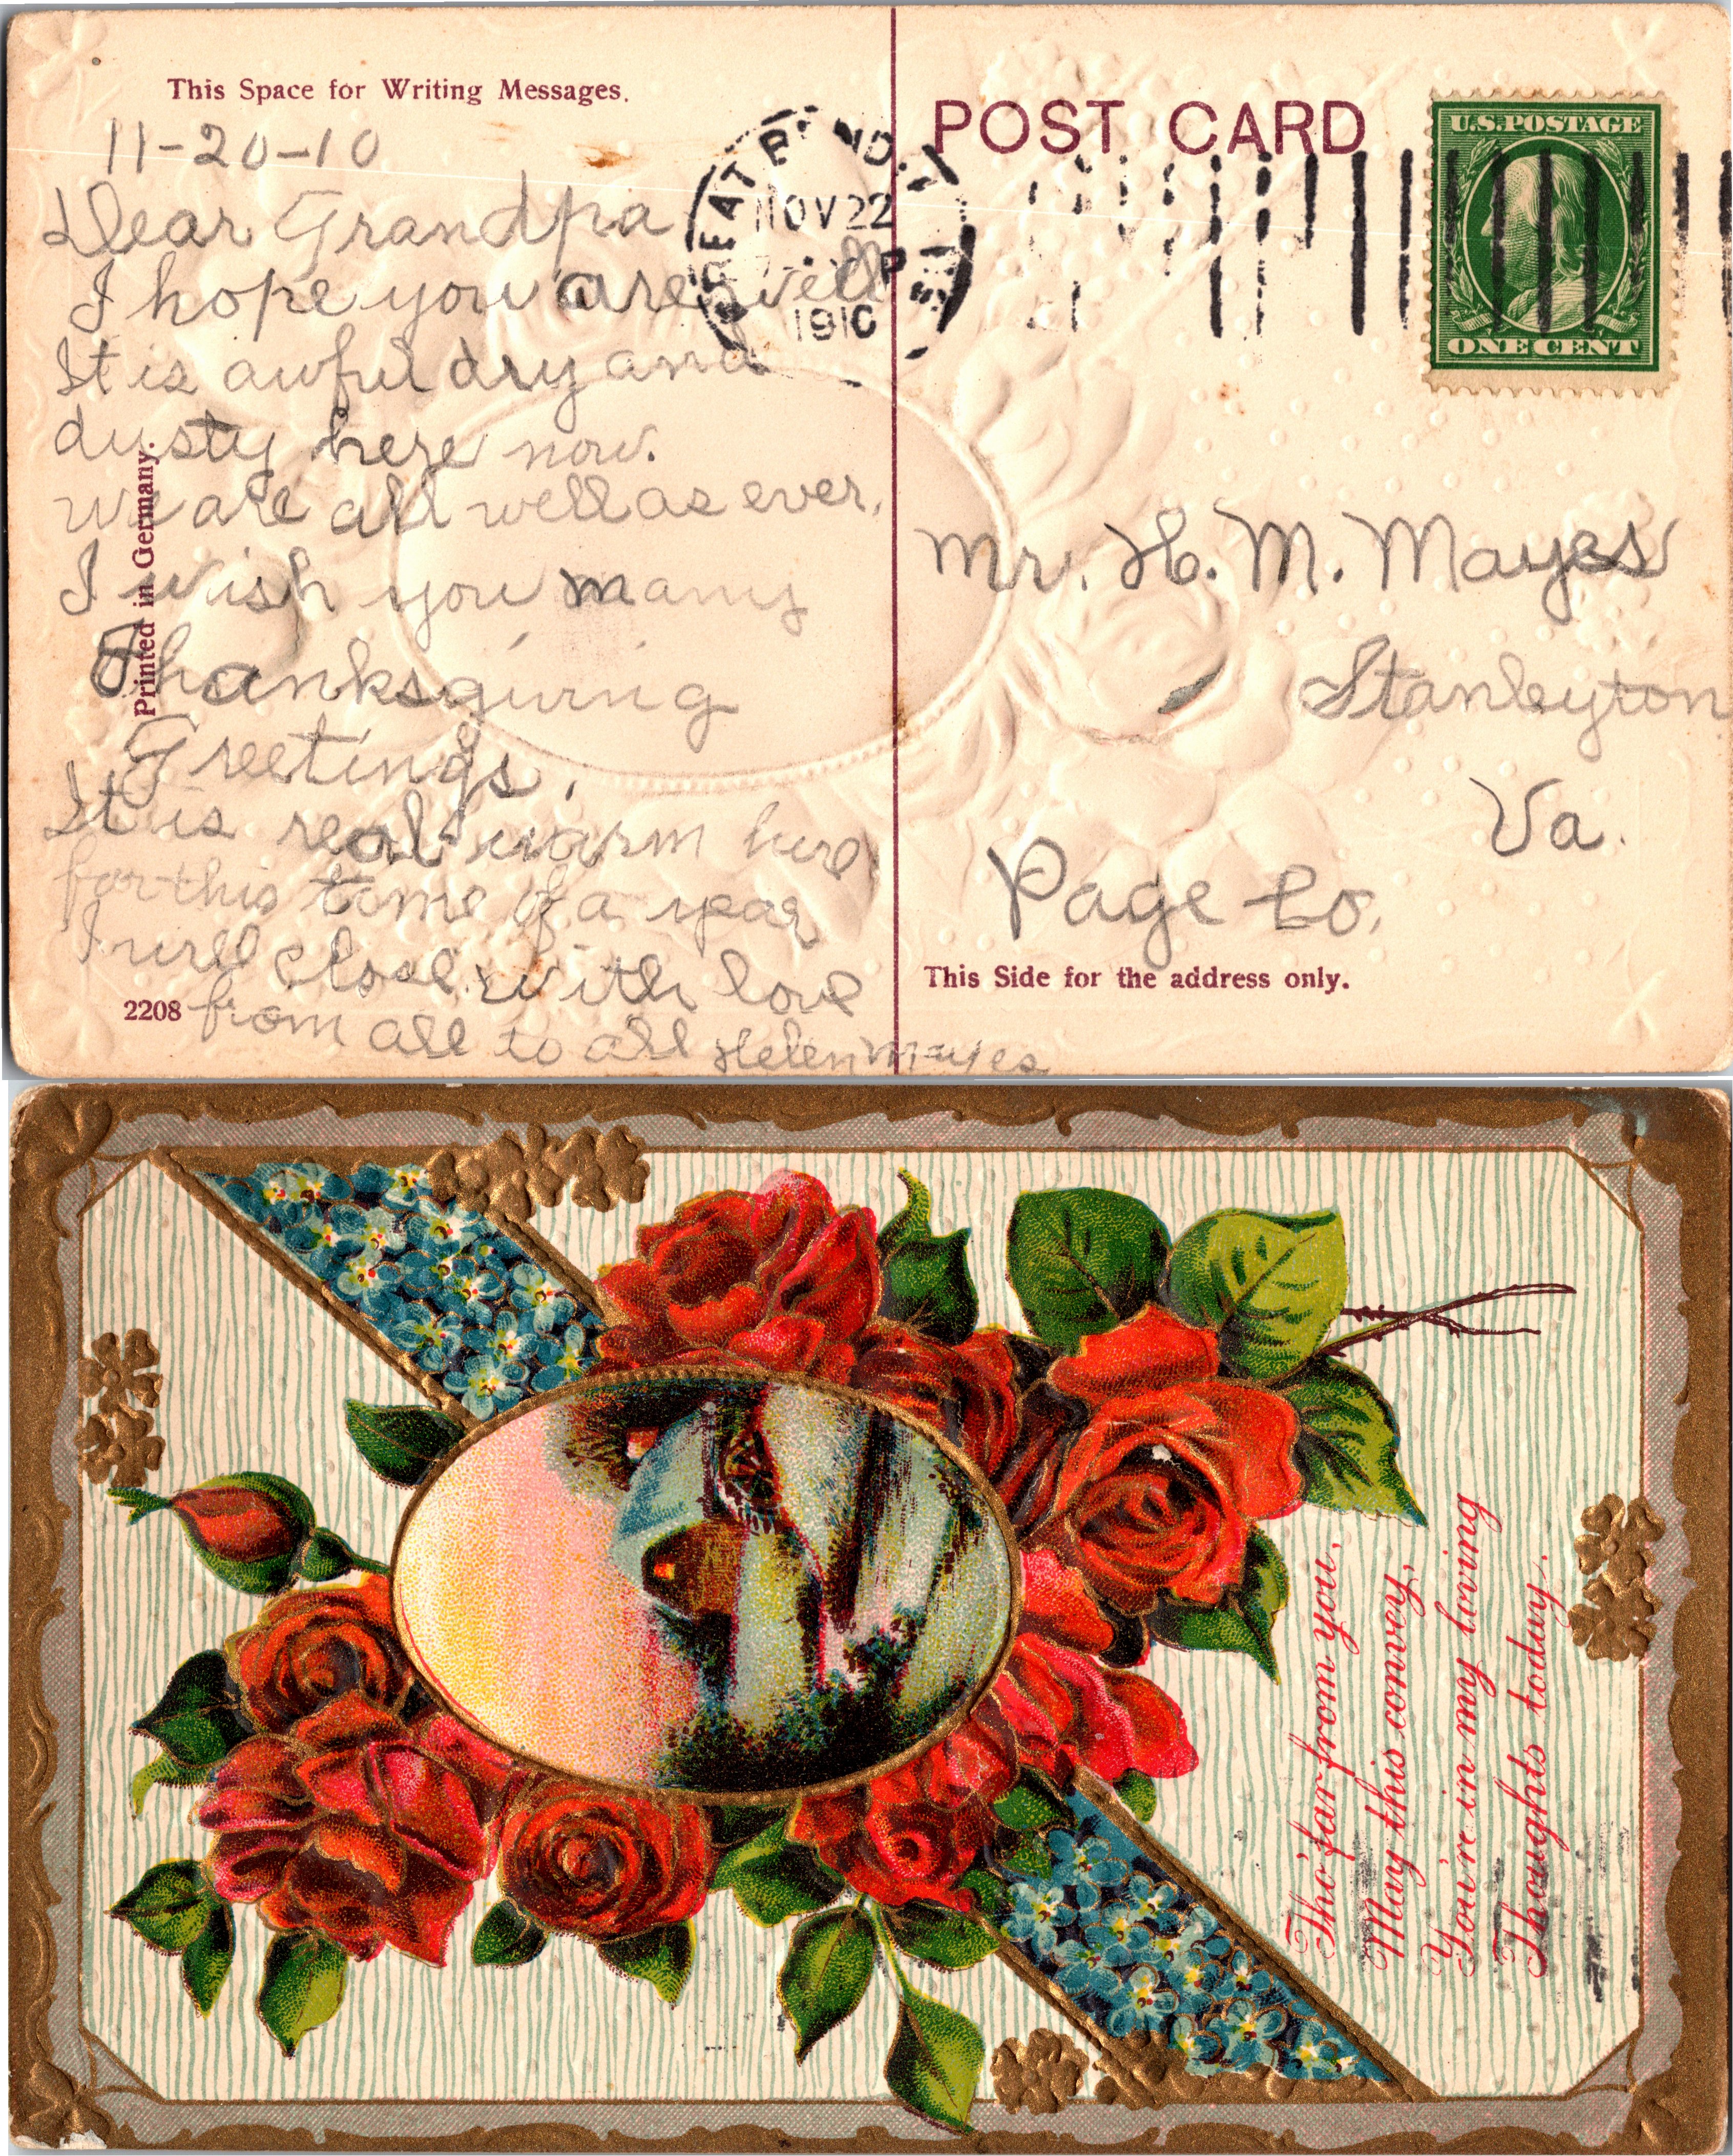 This Space for Writing Messages.
11-20-10
Dear Grandpa
I hope you are well
It is awful dry and
dusty here now.
we are all well as ever.
I wish you many
Thanksgiving
Greetings.
It is real warm here
for this time of a year
I will close with love
from all to all Helen Mayes
Printed in Germany.
2208
GREAT BEND
NOV 22
P
1910
POST CARD
U.S. POSTAGE
ONE CENT
Mr. H. M. Mayes
Stanleyton
Va.
Page Co.
This Side for the address only.
Tho' far from you,
May this convey,
You're in my loving
Thoughts today.